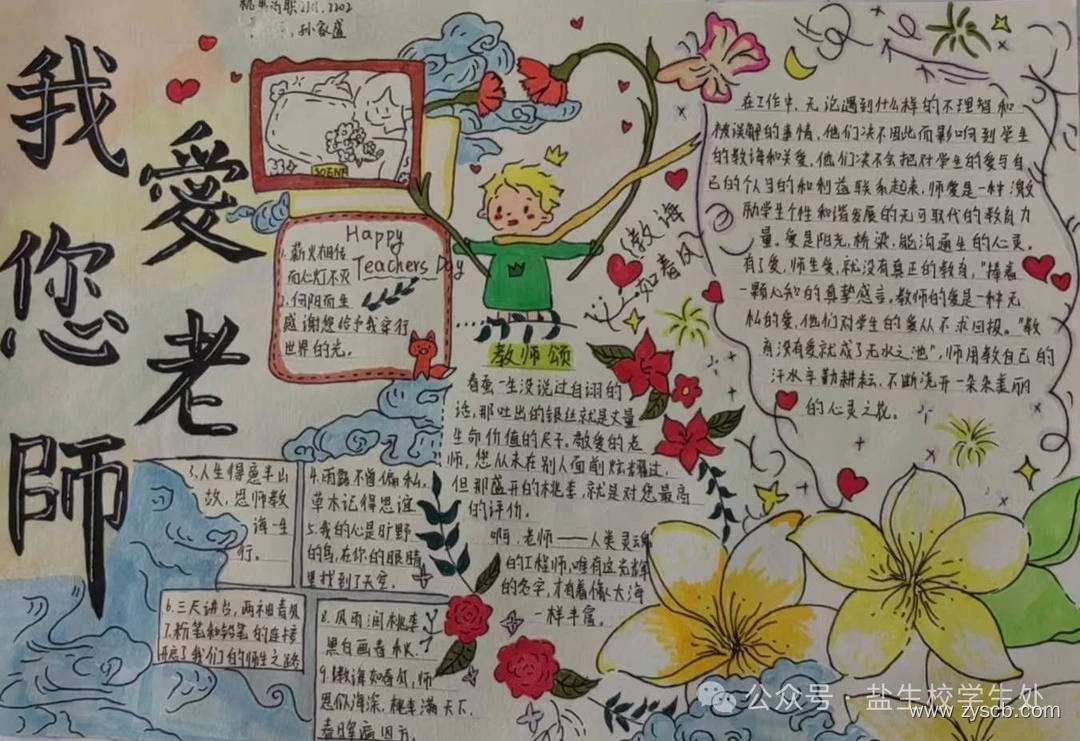 我愛您老師
孙家盛
Happy
Teachers Day
1.薪火相传
而心灯不灭
2.向阳而生
感谢您给予我穿行
世界的光。
教诲
如春风
教师颂
春蚕一生没说过自诩的
话,那吐出的银丝就是丈量
生命价值的尺子。敬爱的老
师,您从未在别人面前炫耀过,
但那盛开的桃李,就是对您最高
的评价。
啊,老师——人类灵魂
的工程师,唯有这光辉
的名字,才有着像大海
一样丰富。
在工作中,无论遇到什么样的不理智和
被误解的事情,他们决不因此而影响到学生
的教诲和关爱,他们决不会把对学生的爱与自
己的个人的和利益联系起来,师爱是一种激
励学生个性和谐发展的无可取代的教育力
量。爱是阳光,桥梁,能沟通生的心灵。
有了爱,师生爱,就没有真正的教育,"捧着
一颗心和的真挚感言,教师的爱是一种无
私的爱,他们对学生的爱从不求回报。"教
育没有爱就成了无水之池",师用教自己的
汗水辛勤耕耘,不断浇开一朵朵美丽
的心灵之花。
3.人生得意半山
故,恩师教
诲一生
行。
4.雨露不曾偏私,
草木记得恩谊
5.我的心是旷野
的鸟,在你的眼睛
里找到了天空。
6.三尺讲台,两袖春风
7.粉笔和铅笔的连接
开启了我们的师生之路
8.风雨润桃李
黑白画春秋.
9.教诲如春风,师
恩似海深,桃李满天下,
春晖遍四方
公众号·盐生校学生处
www.zyscb.com